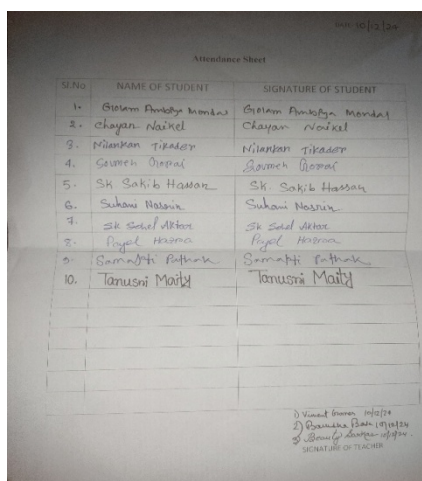 10/12/24
Attendance Sheet
Sl.No NAME OF STUDENT SIGNATURE OF STUDENT
1. Golam Mondal Golam Mondal
2. Chayan Naikel Chayan Naikel
3. Nilankan Tikader Nilankan Tikader
4. Soumen Soumen
5. SK Sakib Hassan SK. Sakib Hassan
6. Suhani Nasrin Suhani Nasrin
7. SK Sohel Aktar SK Sohel Aktar
8. Payel Hazra Payel Hazra
9. Samapti Pathak Samapti Pathak
10. Tanusri Maity Tanusri Maity
1) 10/12/24
2) 10/12/24
3)
SIGNATURE OF TEACHER